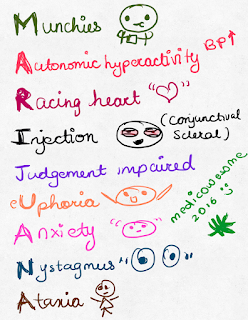 Munchies
Autonomic hyperactivity BP↑
Racing heart "♡"
Injection (Conjunctival
Scleral)
Judgement impaired
eUphoria
Anxiety " "
Nystagmus " "
Ataxia
medicowesome
2016 :)